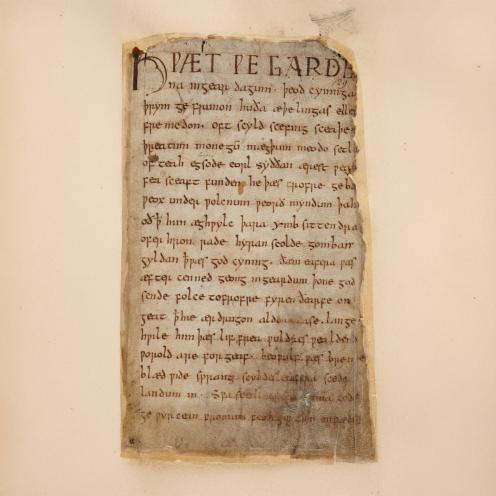 HǷÆT ǷE GARDE
na ingear dagum. þeod cyninga
þrym ge frunon huða æþelingas elle
fre medon. oft scyld scefing sceaþe
þreatum monegū mægþum meodo setl
of teah egsode eorl syððan ærest ƿear
fea sceaft funden he þæs frofre geba
ƿeox under ƿolcnum ƿeorð myndum þah
oð ꝥ him æghƿylc þara ymb sittendra
ofer hron rade hyran scolde gomban
gyldan ꝥ ƿæs god cyning. ðæm eafera ƿæs
æfter cenned geong ingeardum þone god
sende folce tofrofre fyren ðearfe on
geat ꝥ hie ær drugon aldor ase. lange
hƿile him þæs lif frea ƿuldres ƿealdend
ƿorold are for geaf. beoƿulf ƿæs breme
blæd ƿide sprang scyldes eafera scede
landum in. Sƿa sceal uma gode
ge ƿyrcean fromum feoh giftum on fæder